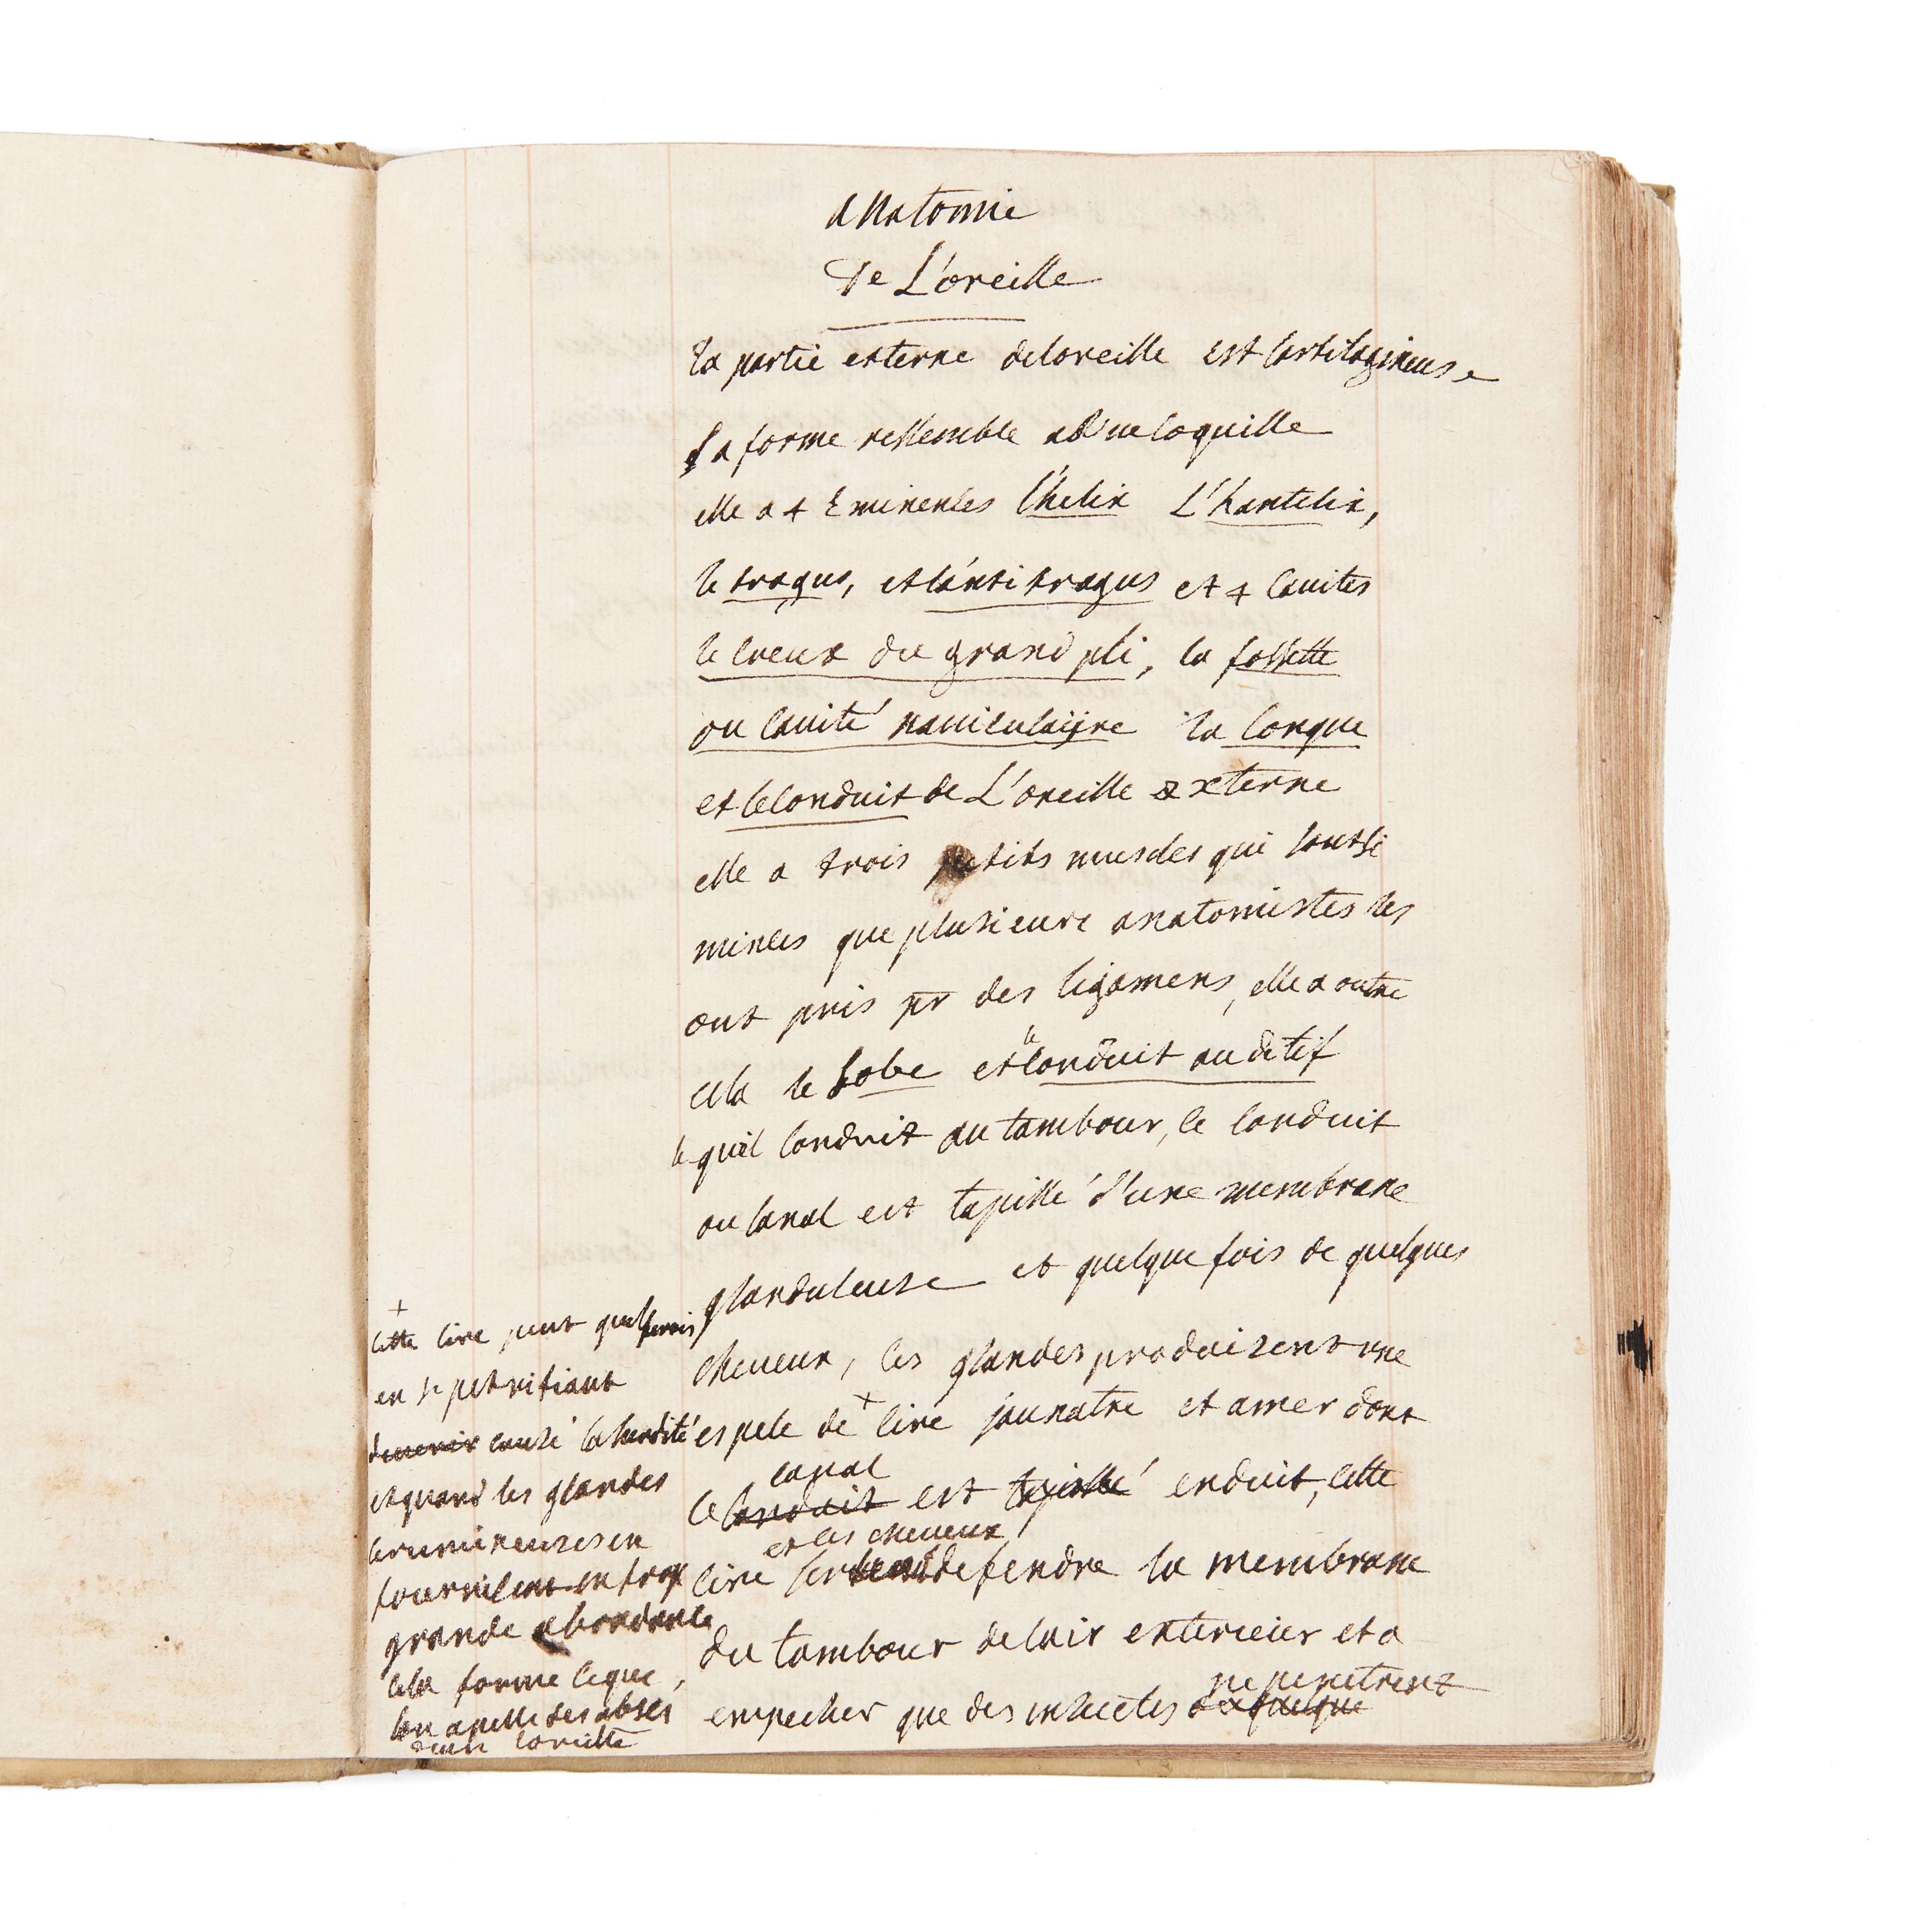 anatomie
de L'oreille
la partie externe deloreille est cartilagineuse
sa forme ressemble a une coquille
elle a 4 Eminences l'helix L'hantelix,
le tragus, et l'antitragus et 4 cavites
le creux du grand pli, la fossette
ou cavité naviculaijre la conque
et le conduit de L'oreille externe
elle a trois petits muscles qui sont si
minces que plusieurs anatomistes les
ont pris pr des ligamens, elle a outre
cela le Lobe et le conduit auditif
le quel conduit au tambour, ce conduit
ou canal est tapissé d'une membrane
glanduleuse et quelque fois de quelques
cheveux, ces glandes produisent une
espece de + cire jaunatre et amer dont
ce conduit canal est tapissé enduit, cette
cire et ces cheveux defendre la membrane
du tambour de lair exterieur et a
empecher que des insectes ne penetrent
+
cette cire peut quelq fois
en se petrifiant
devenir causé la surdité
et quand les glandes
cerumineuses en
fournissent en trop
grande abondance
cela forme ceque
lon apelle des abses
dans loreille